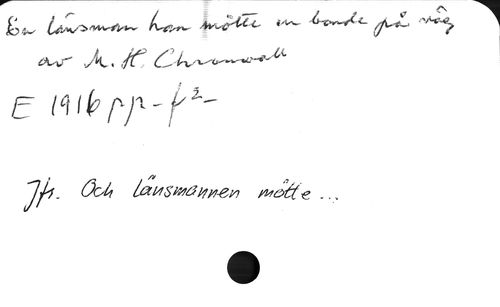 En länsman han mötte en bonde på väg
av M. H. Chronwall
E 1916 pp - f 2 -
Jfr. Och länsmannen mötte ...